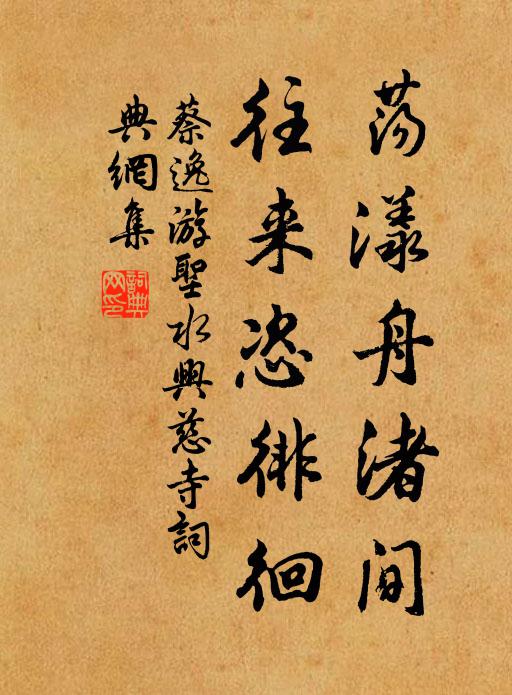 荡漾舟渚间
往来恣徘徊
蔡逸游聖水興慈寺詞
典網集
詞典
网印